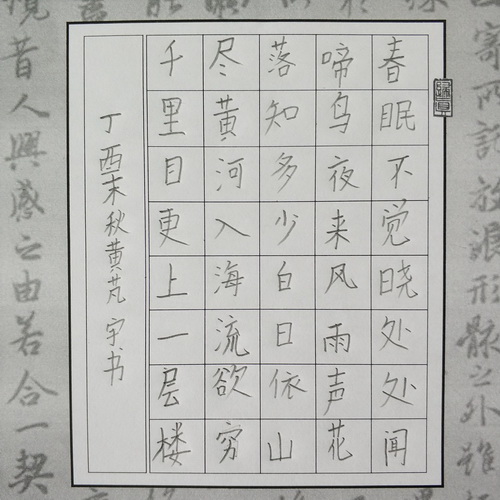 寄所託放浪形骸之外雖
春眠不觉晓处处闻
啼鸟夜来风雨声花
落知多少白日依山
尽黄河入海流欲穷
千里目更上一层楼
丁酉末秋黄芃宇书
昔人興感之由若合一契